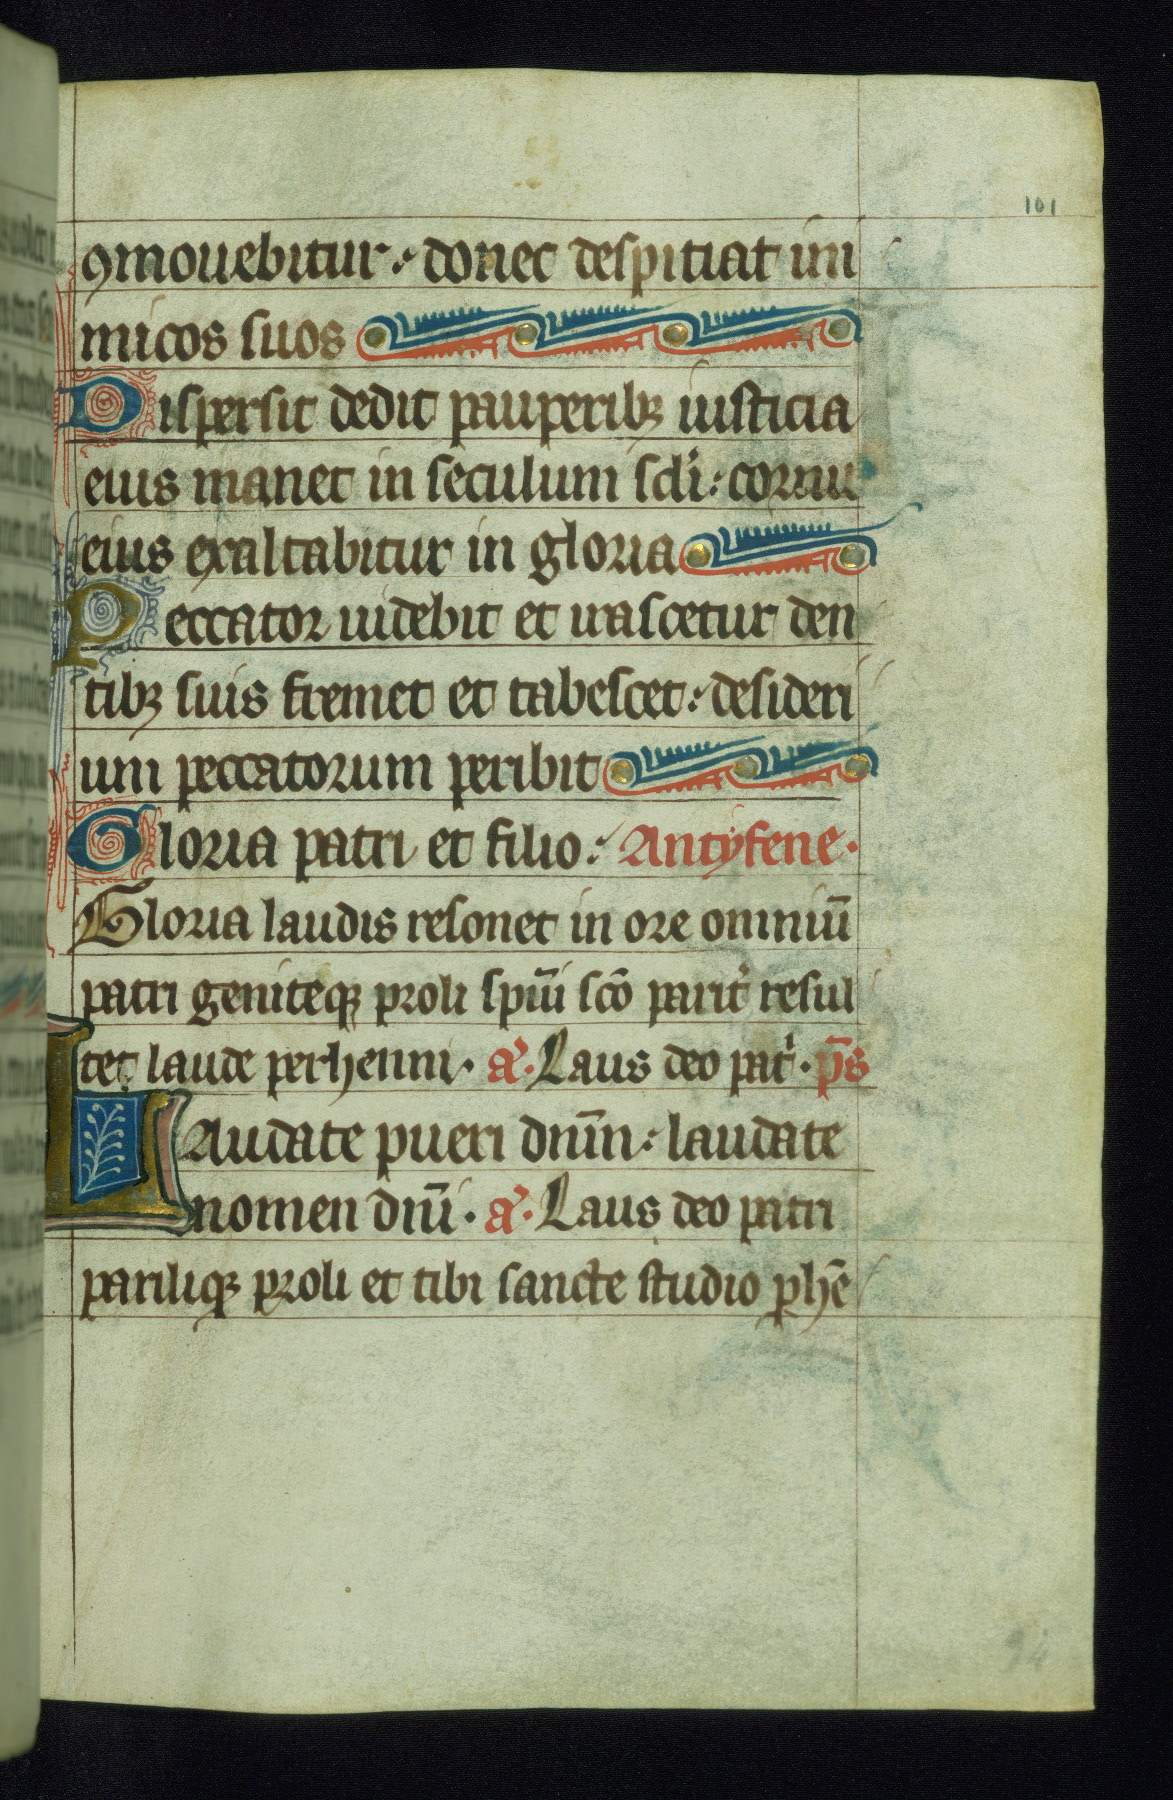 101
ꝯmouebitur : donec despitiat ini
micos suos
Dispersit dedit pauperibꝫ iusticia
eius manet in seculum scli : cornu
eius exaltabitur in gloria
Peccator uidebit et irascetur den
tibꝫ suis fremet et tabescet : desideri
um peccatorum peribit
Gloria patri et filio : Antyfene ·
Gloria laudis resonet in ore omniū
patri geniteqꝫ proli spiūi scō parit̛ resul
tet laude perhenni · a̛ · Laus deo pat̛ · p̄s
Laudate pueri dn̄m : laudate
nomen dnī · a̛ · Laus deo patri
parilique proli et tibi sancte studio phē
94